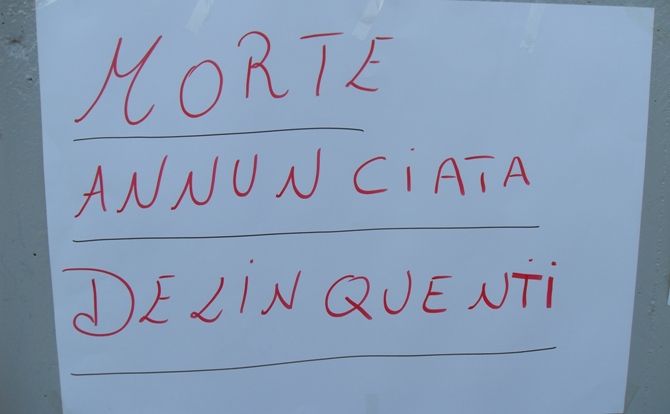 MORTE
ANNUNCiATA
DELiNQUENTi